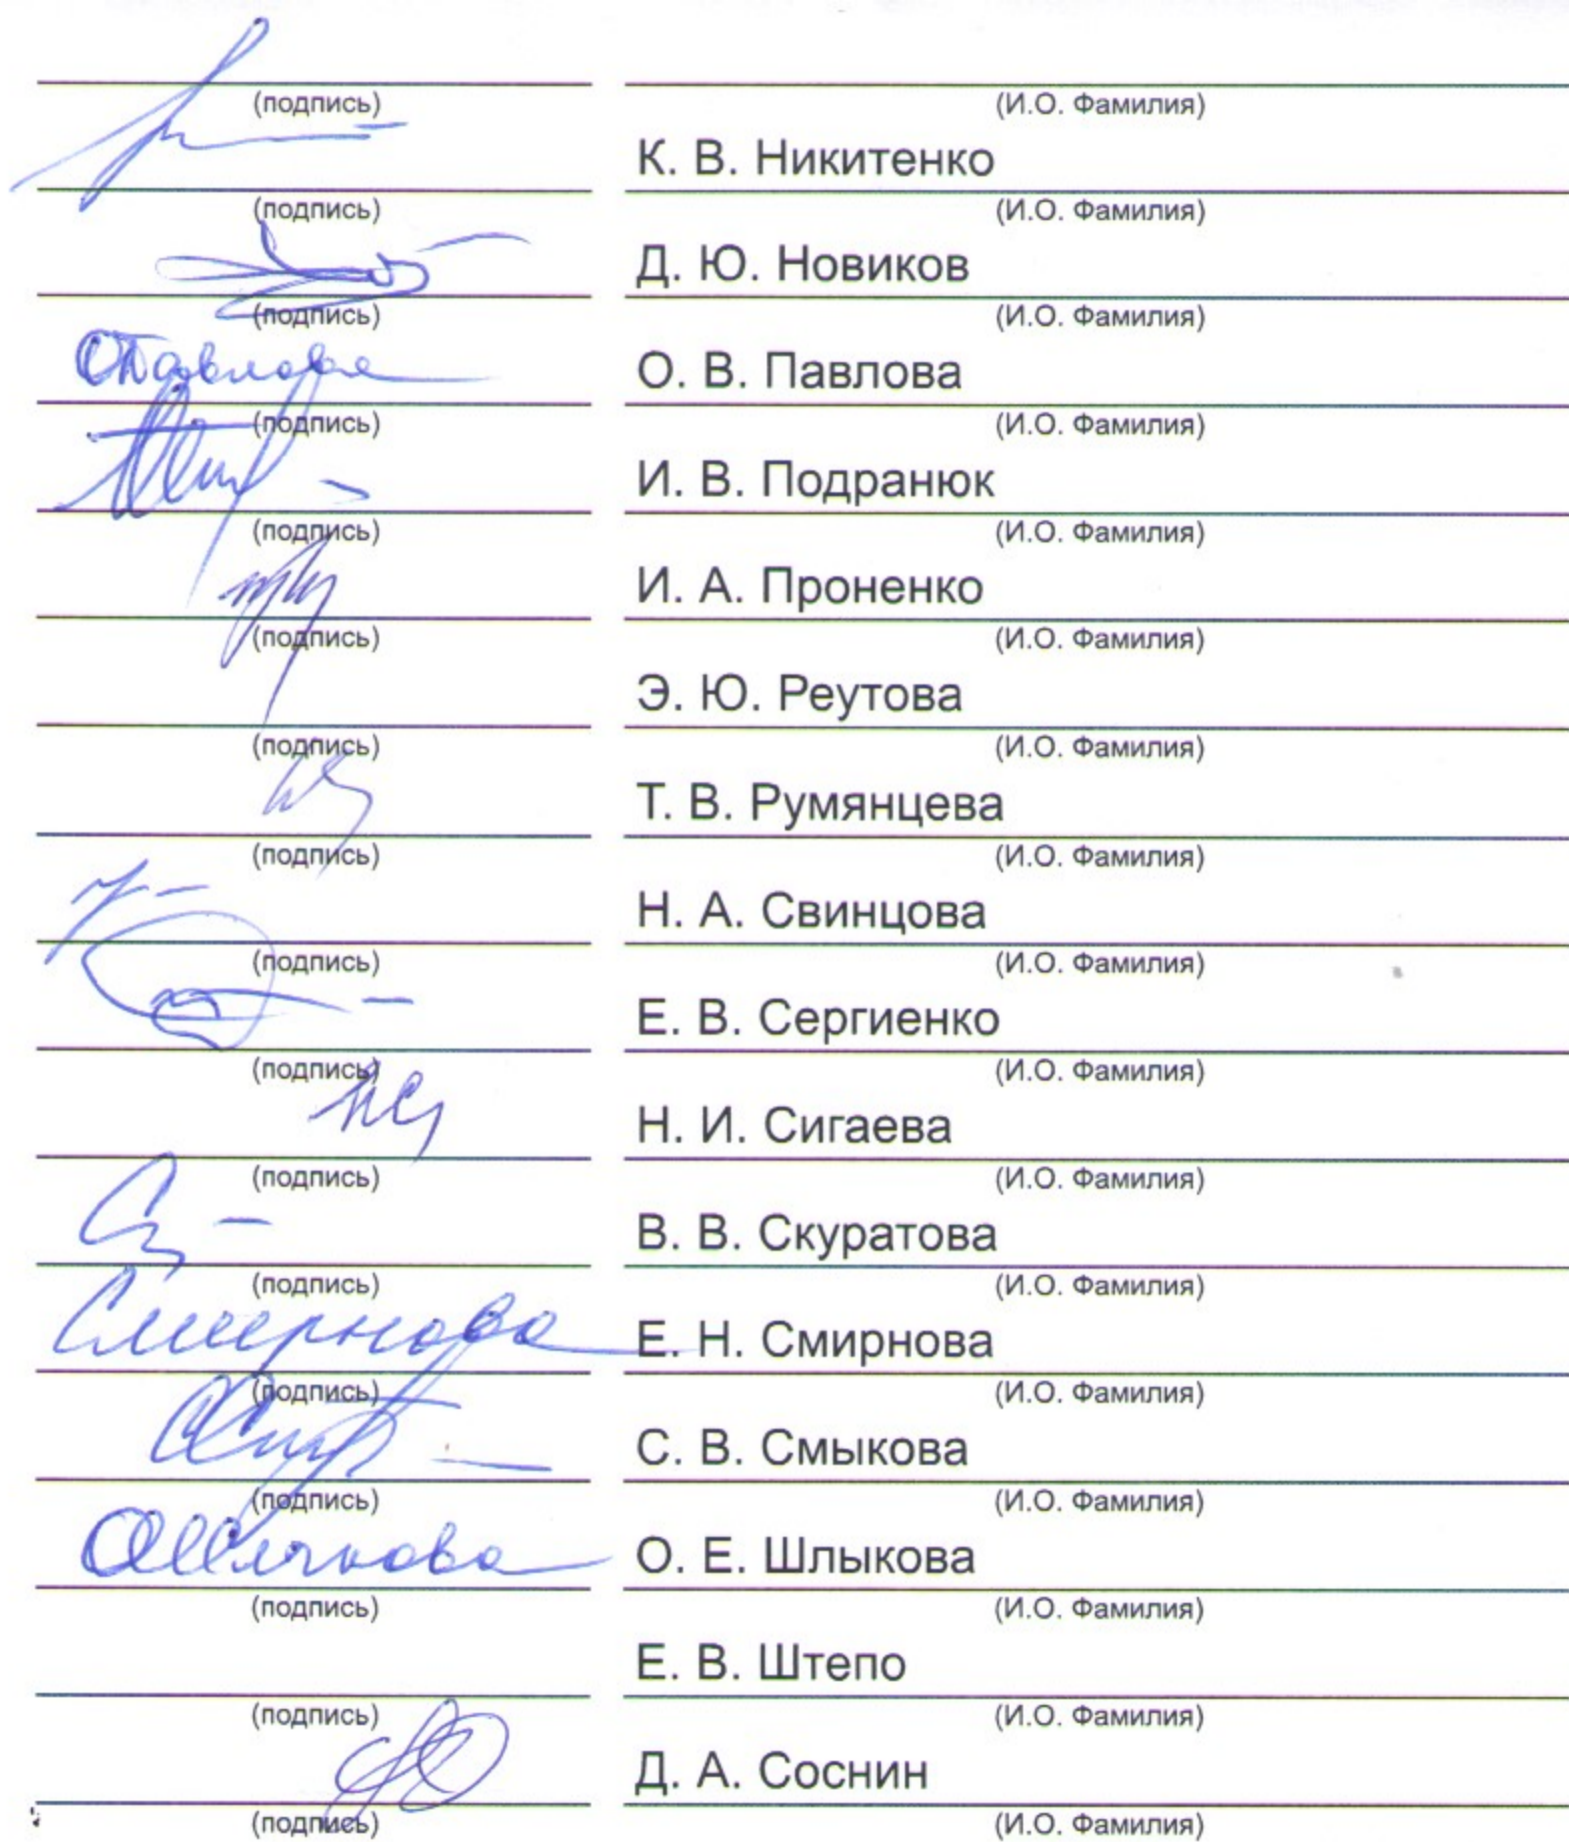 (подпись) (И.О. Фамилия)
К. В. Никитенко
(подпись) (И.О. Фамилия)
Д. Ю. Новиков
(подпись) (И.О. Фамилия)
ОПавлова О. В. Павлова
(подпись) (И.О. Фамилия)
И. В. Подранюк
(подпись) (И.О. Фамилия)
И. А. Проненко
(подпись) (И.О. Фамилия)
Э. Ю. Реутова
(подпись) (И.О. Фамилия)
Т. В. Румянцева
(подпись) (И.О. Фамилия)
Н. А. Свинцова
(подпись) (И.О. Фамилия)
Е. В. Сергиенко
(подпись) (И.О. Фамилия)
Н. И. Сигаева
(подпись) (И.О. Фамилия)
В. В. Скуратова
(подпись) (И.О. Фамилия)
Смирнова Е. Н. Смирнова
(подпись) (И.О. Фамилия)
С. В. Смыкова
(подпись) (И.О. Фамилия)
ОШлыкова О. Е. Шлыкова
(подпись) (И.О. Фамилия)
Е. В. Штепо
(подпись) (И.О. Фамилия)
Д. А. Соснин
(подпись) (И.О. Фамилия)